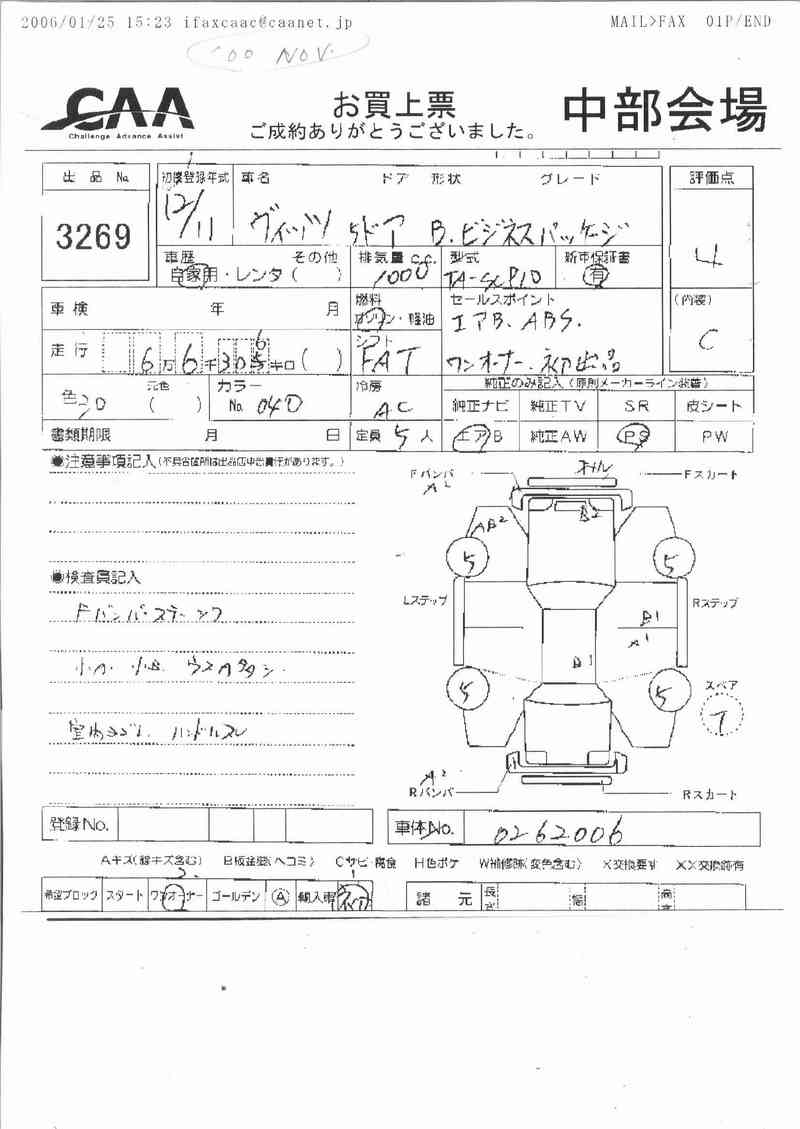 2006/01/25 15:23 ifaxcaac@caanet.jp MAIL>FAX 01P/END
'00 NOV.
CAA
Challenge Advance Assist
お買上票
ご成約ありがとうございました。
中部会場
出品 No. 初度登録年式 車名 ドア 形状 グレード 評価点
3269 12/11 ヴィッツ 5ドア B.ビジネスパッケージ 4
車歴 その他 排気量 c.c. 型式 新車保証書
自家用・レンタ( ) 1000 TA-SCP10 有
車検 年 月 燃料 セールスポイント (内装)
ガソリン・軽油 エアB. ABS. C
走行 6万6千305キロ( ) シフト
6
FAT ワンオーナー. 初出品
色 元色 カラー 冷房 純正のみ記入(原則メーカーライン装着)
30 ( ) No. 040 AC 純正ナビ 純正TV SR 皮シート
書類期限 月 日 定員 5人 エアB 純正AW PS PW
●注意事項記入(不具合箇所は出品店申告責任があります。)
Fバンパ Fスカート
A2
AB2 B2
5 5
●検査員記入
Lステップ Rステップ
Fバンパステーシフ
B1
A1
B1
小キ. 小凹.
5 5 スペア
T
室内ヨゴレ. ハンドルスレ
A2
Rバンパ Rスカート
登録No. 車体No. 0262006
Aキズ(線キズ含む) B板金要(ヘコミ) Cサビ・腐食 H色ボケ W補修跡(変色含む) X交換要す XX交換跡有
2. 1
希望ブロック スタート ワンオーナー ゴールデン A 輸入車 諸元 長さ 幅 高さ